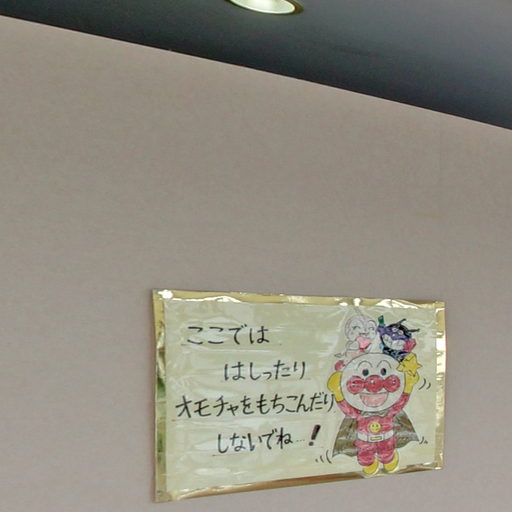 ここでは
はしったり
オモチャをもちこんだり
しないでね…!